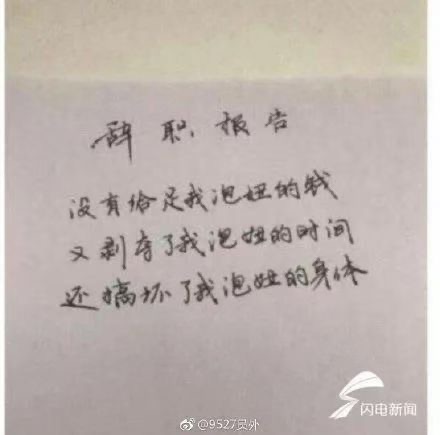 辞职报告
没有给足我泡妞的钱
又剥夺了我泡妞的时间
还搞坏了我泡妞的身体
闪电新闻
@9527员外